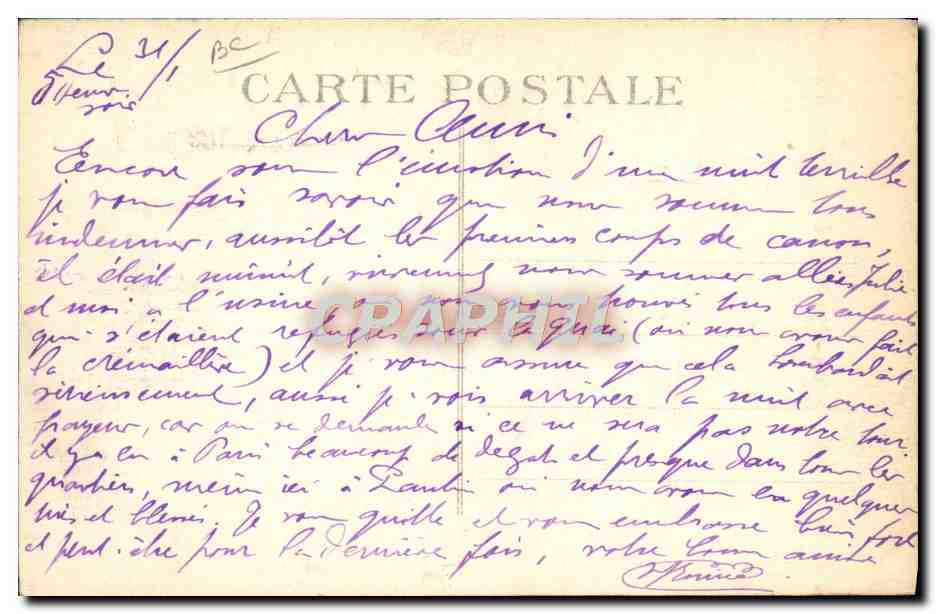 Le 31/1
BC
5 heures
soir
CARTE POSTALE
Chers Amis
Encore sous l'émotion d'une nuit terrible
je vous fais savoir que nous sommes tous
indemnes, aussitôt les premiers coups de canon,
il était minuit, vivement nous sommes allées Julie
et moi à l'usine où nous avons trouvés tous les enfants
qui s'étaient refugiés sous le quai (où nous avons fait
la crémaillère) et je vous assure que cela bombardait
sérieusement, aussi je vois arriver la nuit avec
frayeur, car on se demande si ce ne sera pas notre tour
il y a eu à Paris beaucoup de degats et presque dans tous les
quartiers, même ici à Pantin où nous avons eu quelques
tués et blessés. Je vous quitte et vous embrasse bien fort
et peut-être pour la dernière fois, votre bonne amie
CPAPHIL